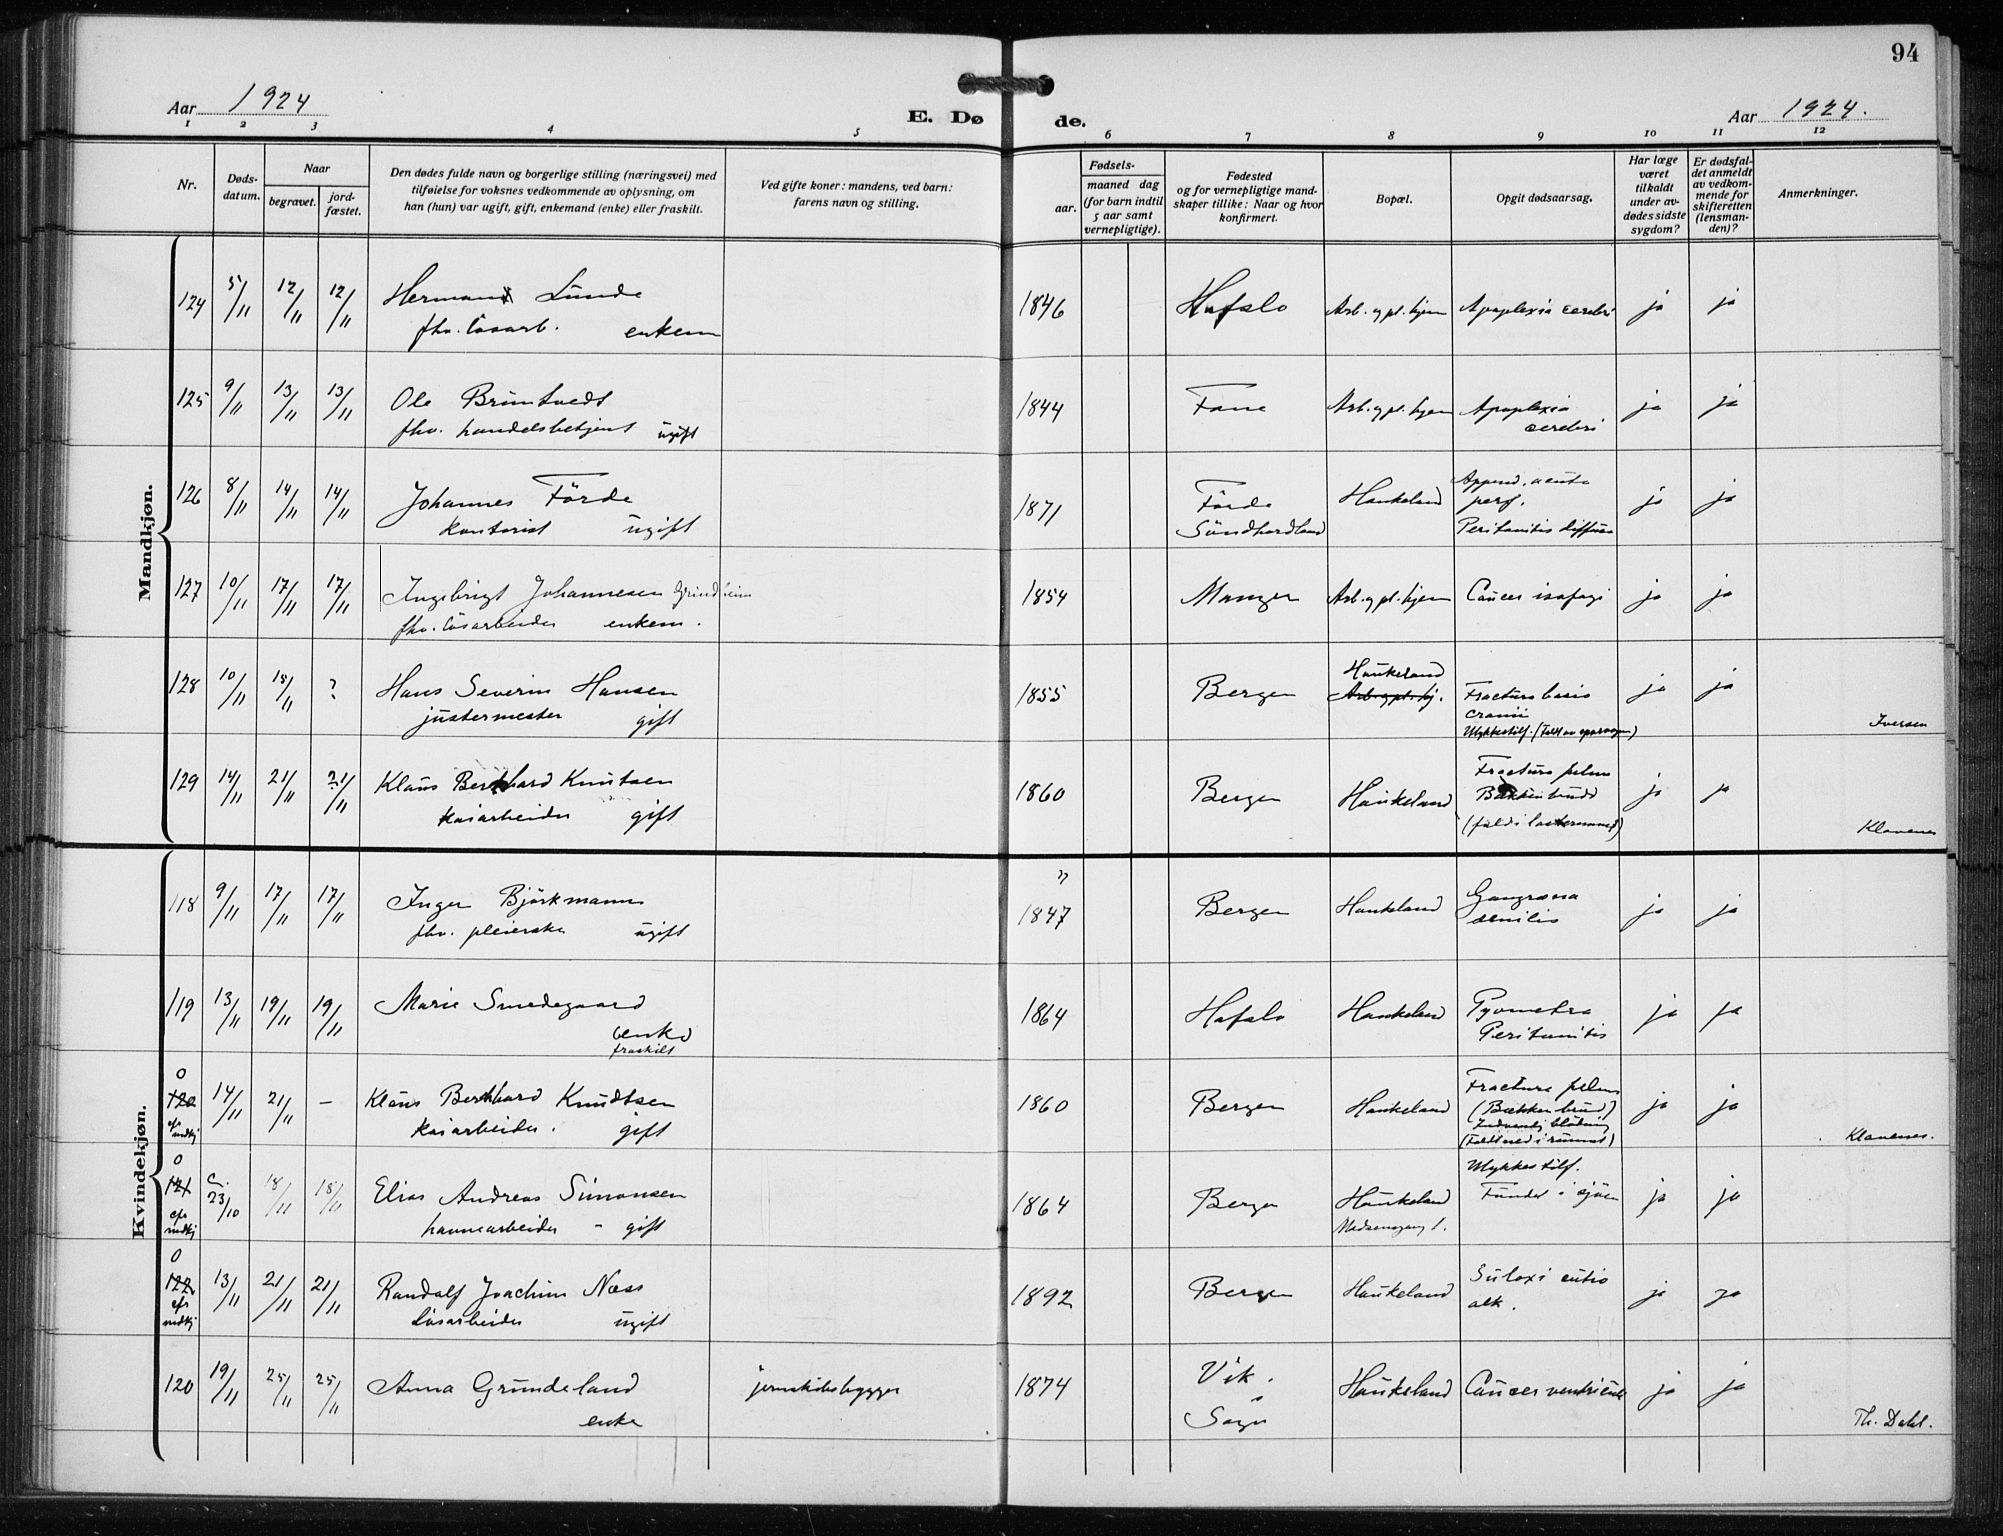 94
Aar 1924
E. Dø de.
Aar 1924.
1 2 3 4 5 6 7 8 9 10 11 12
Nr.
Døds-
datum.
Naar
begravet.
jord-
fæstet.
Den dødes fulde navn og borgerlige stilling (næringsvei) med
tilføielse for voksnes vedkommende av oplysning, om
han (hun) var ugift, gift, enkemand (enke) eller fraskilt.
Ved gifte koner: mandens, ved barn:
farens navn og stilling.
Fødsels-
aar.
maaned dag
(for barn indtil
5 aar samt
vernepligtige).
Fødested
og for vernepligtige mand-
skaper tillike: Naar og hvor
konfirmert.
Bopæl.
Opgit dødsaarsag.
Har læge
været
tilkaldt
under av-
dødes sidste
sygdom?
Er dødsfal-
det anmeldt
av vedkom-
mende for
skifteretten
(lensman-
den)?
Anmerkninger.
Mandkjøn.
124 5/11 12/11 12/11 Herman Lunde 1846 Hafslo Arb. og pl. hjem Apoplexia cerebri ja ja
fhv. løsarb. enkem
125 9/11 13/11 13/11 Ole Bruntvedt 1844 Fane Arb. og pl. hjem Apoplexia ja ja
fhv. handelsbetjent ugift cerebri
126 8/11 14/11 14/11 Johannes Førde 1871 Førde Haukeland Append. acuta ja ja
perf.
kontorist ugift Søndhordland Peritonitis diffusa
127 10/11 17/11 17/11 Ingebrigt Johannesen Grindheim 1854 Manger Arb. og pl. hjem Cancer isofagi ja ja
fhv. løsarbeider enkem.
128 10/11 18/11 ? Hans Severin Hansen 1855 Bergen Haukeland Fractura basis ja ja
Arb. og pl. hj.
justermester gift cranii
Ulykkestilf. (Faldt av sporvogn) Iversen
129 14/11 21/11 21/11 Klaus Bernhard Knutsen 1860 Bergen Haukeland Fractura pelvis ja ja
Bækkenbrudd
kaiarbeider gift (fald i lasterummet) Klavenes
Kvindekjøn.
118 9/11 17/11 17/11 Inger Bjørkmann 1847 Bergen Haukeland Gangræna ja ja
fhv. pleierske ugift senilis
119 13/11 19/11 19/11 Marie Smedegaard 1864 Hafslo Haukeland Pyometra ja ja
enke Peritonitis
fraskilt
0
120 14/11 21/11 – Klaus Bernhard Knudtsen 1860 Bergen Haukeland Fractura pelvis ja ja
cfr mdkj
kaiarbeider. gift (Bækkenbrud)
Indvendig blødning
(Faldt ned i rummet) Klavenes.
0
121 c. 23/10 18/11 18/11 Elias Andreas Simonsen 1864 Bergen Haukeland Ulykkestilf. ja ja
cfr mdkj
Fundet i sjøen
havnearbeider - gift
0
122 13/11 21/11 21/11 Randolf Joachim Næss 1892 Bergen Haukeland ja ja
cfr mdkj
Løsarbeider ugift alk.
120 19/11 25/11 25/11 Anna Grundeland jernskibsbygger 1874 Vik i Haukeland Cancer ventriculi ja ja
enke Sogn Th. Dahl.